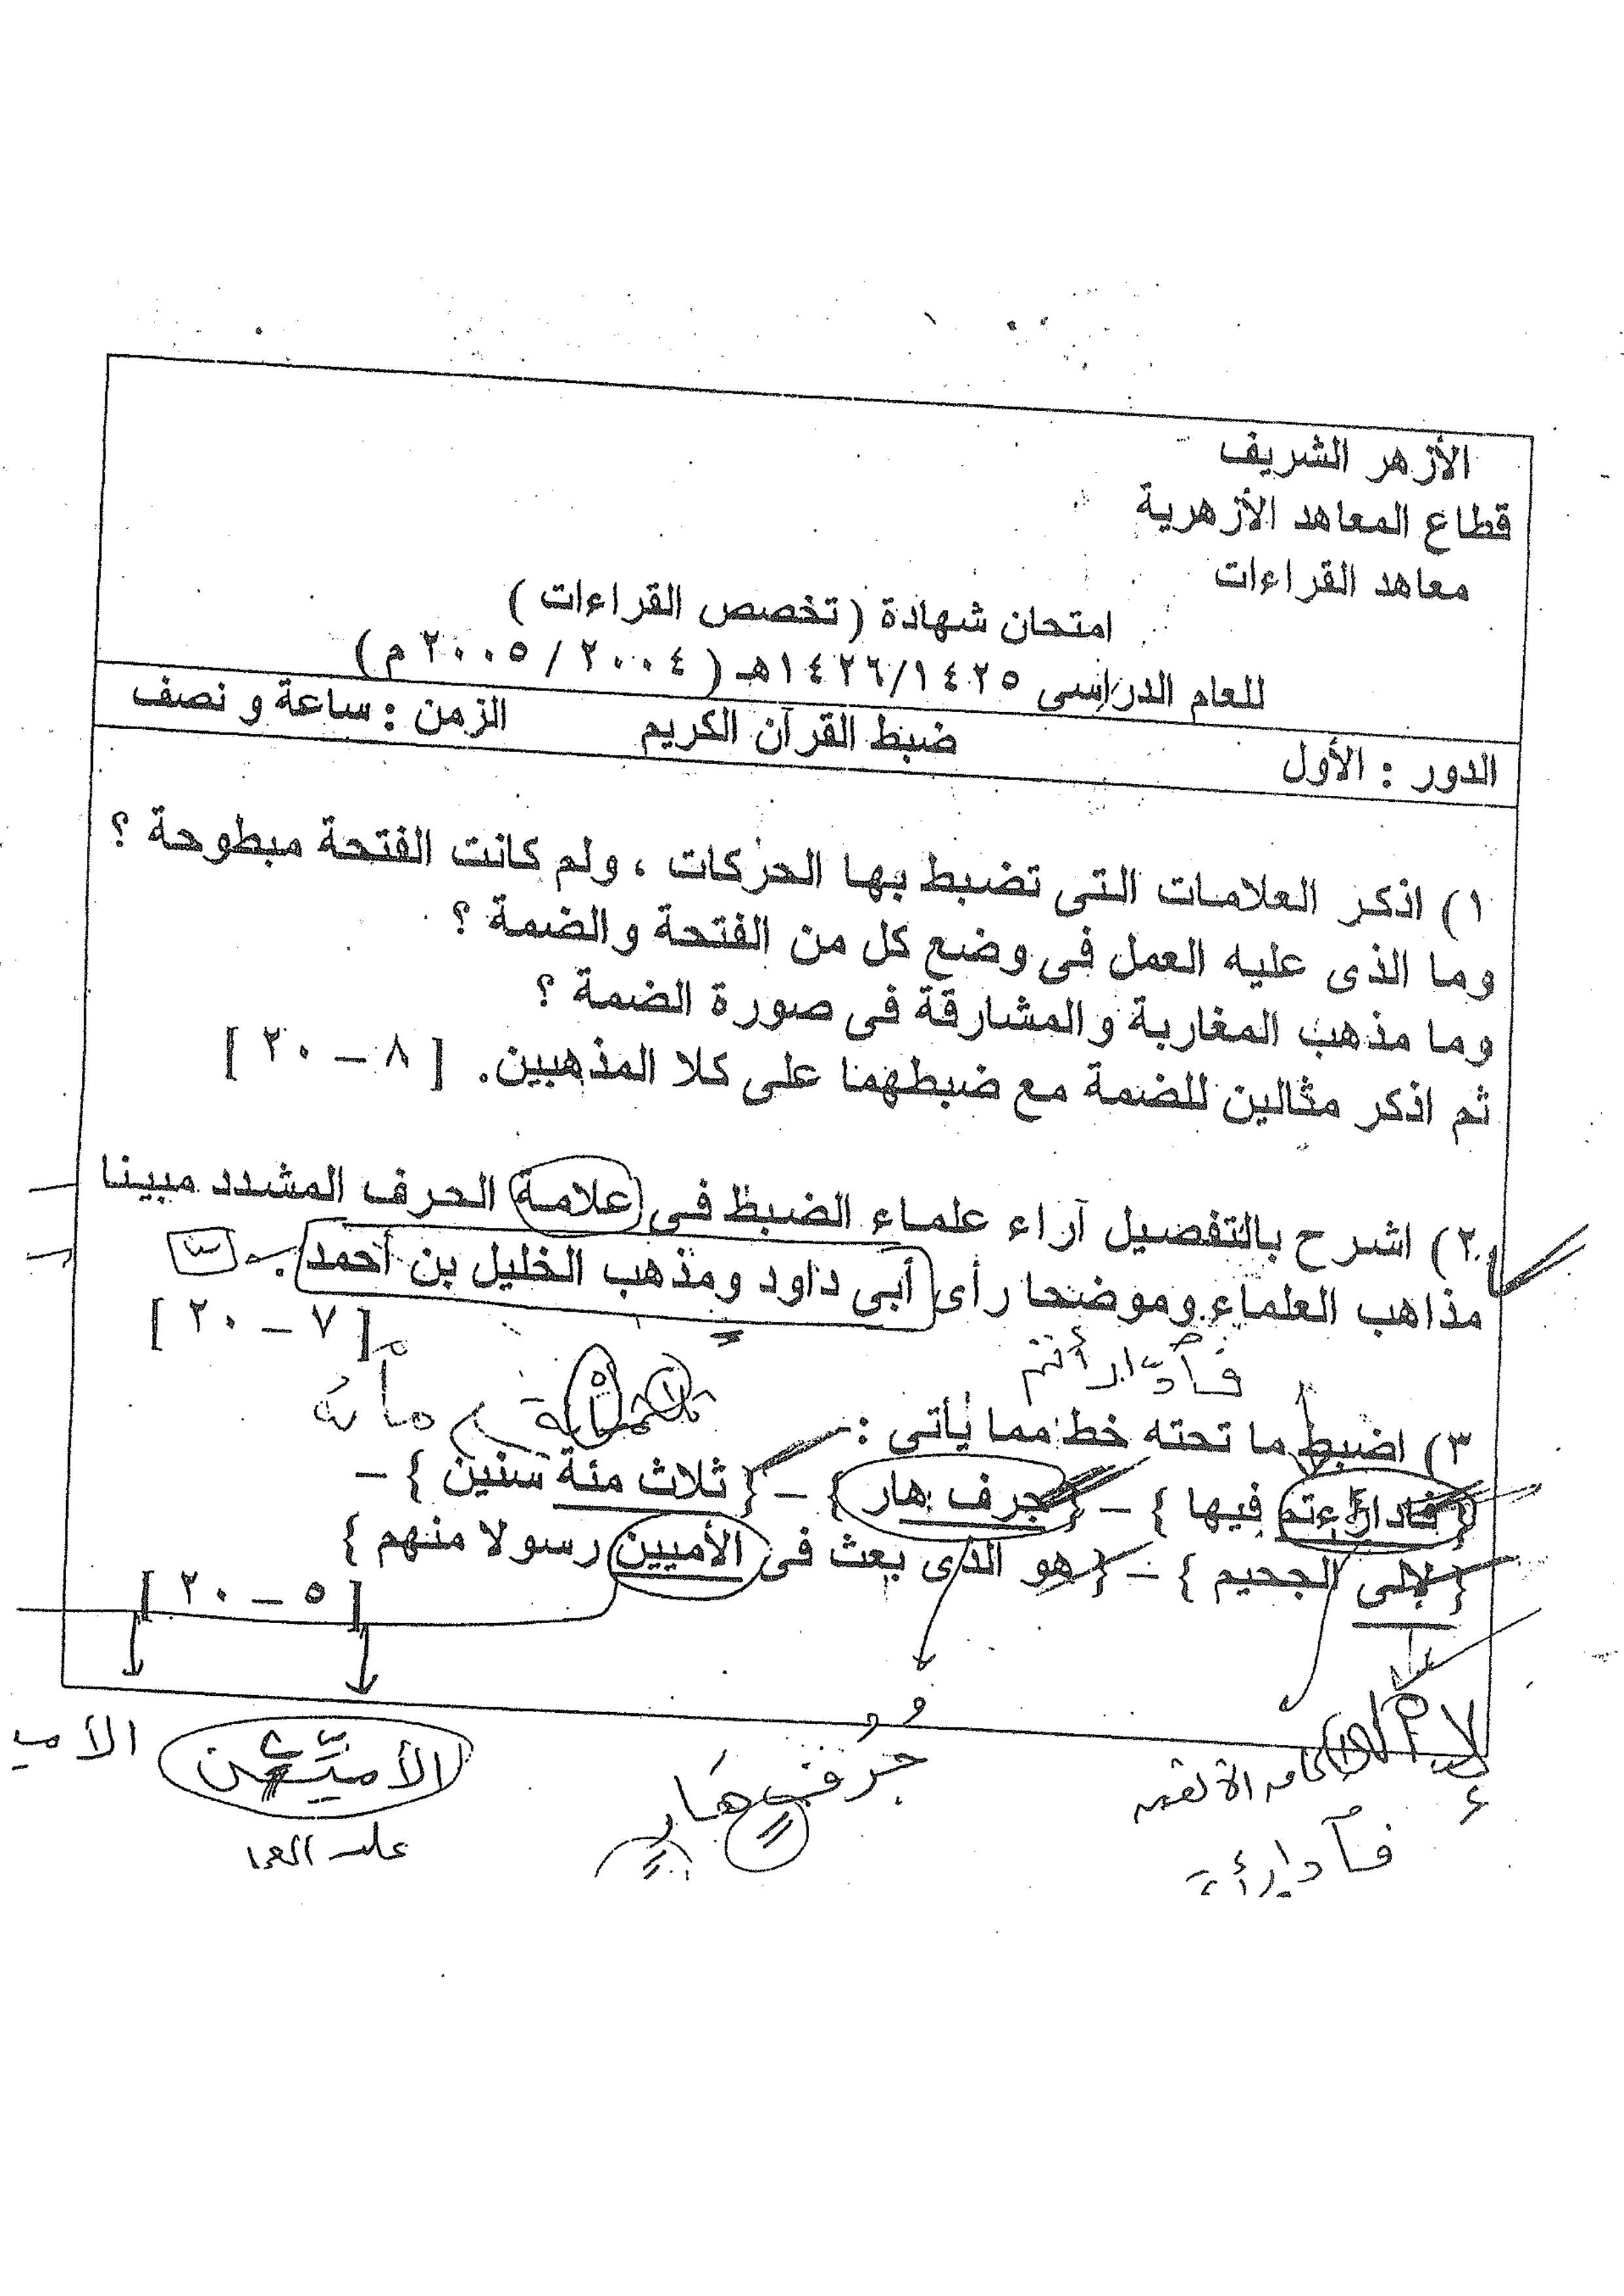 الأزهر الشريف
قطاع المعاهد الأزهرية
معاهد القراءات
امتحان شهادة ( تخصص القراءات )
للعام الدراسى ١٤٢٦/١٤٢٥هـ ( ٢٠٠٤ / ٢٠٠٥ م )
الدور : الأول ضبط القرآن الكريم الزمن : ساعة و نصف
١ ) اذكر العلامات التى تضبط بها الحركات ، ولم كانت الفتحة مبطوحة ؟
وما الذى عليه العمل فى وضع كل من الفتحة والضمة ؟
وما مذهب المغاربة والمشارقة فى صورة الضمة ؟
ثم اذكر مثالين للضمة مع ضبطهما على كلا المذهبين. [ ٨ – ٢٠ ]
٢ ) اشرح بالتفصيل آراء علماء الضبط فى علامة الحرف المشدد مبينا
مذاهب العلماء وموضحا رأى أبى داود ومذهب الخليل بن أحمد .
[ ٧ – ٢٠ ]
٣ ) اضبط ما تحته خط مما يأتى :-
{ فادارءتم فيها } – { جرف هار } – { ثلاث مئة سنين } –
{ لإلى الجحيم } – { هو الذى بعث فى الأميين رسولا منهم }
[ ٥ – ٢٠ ]
جُرُفٍ هَارٍ
الأمي